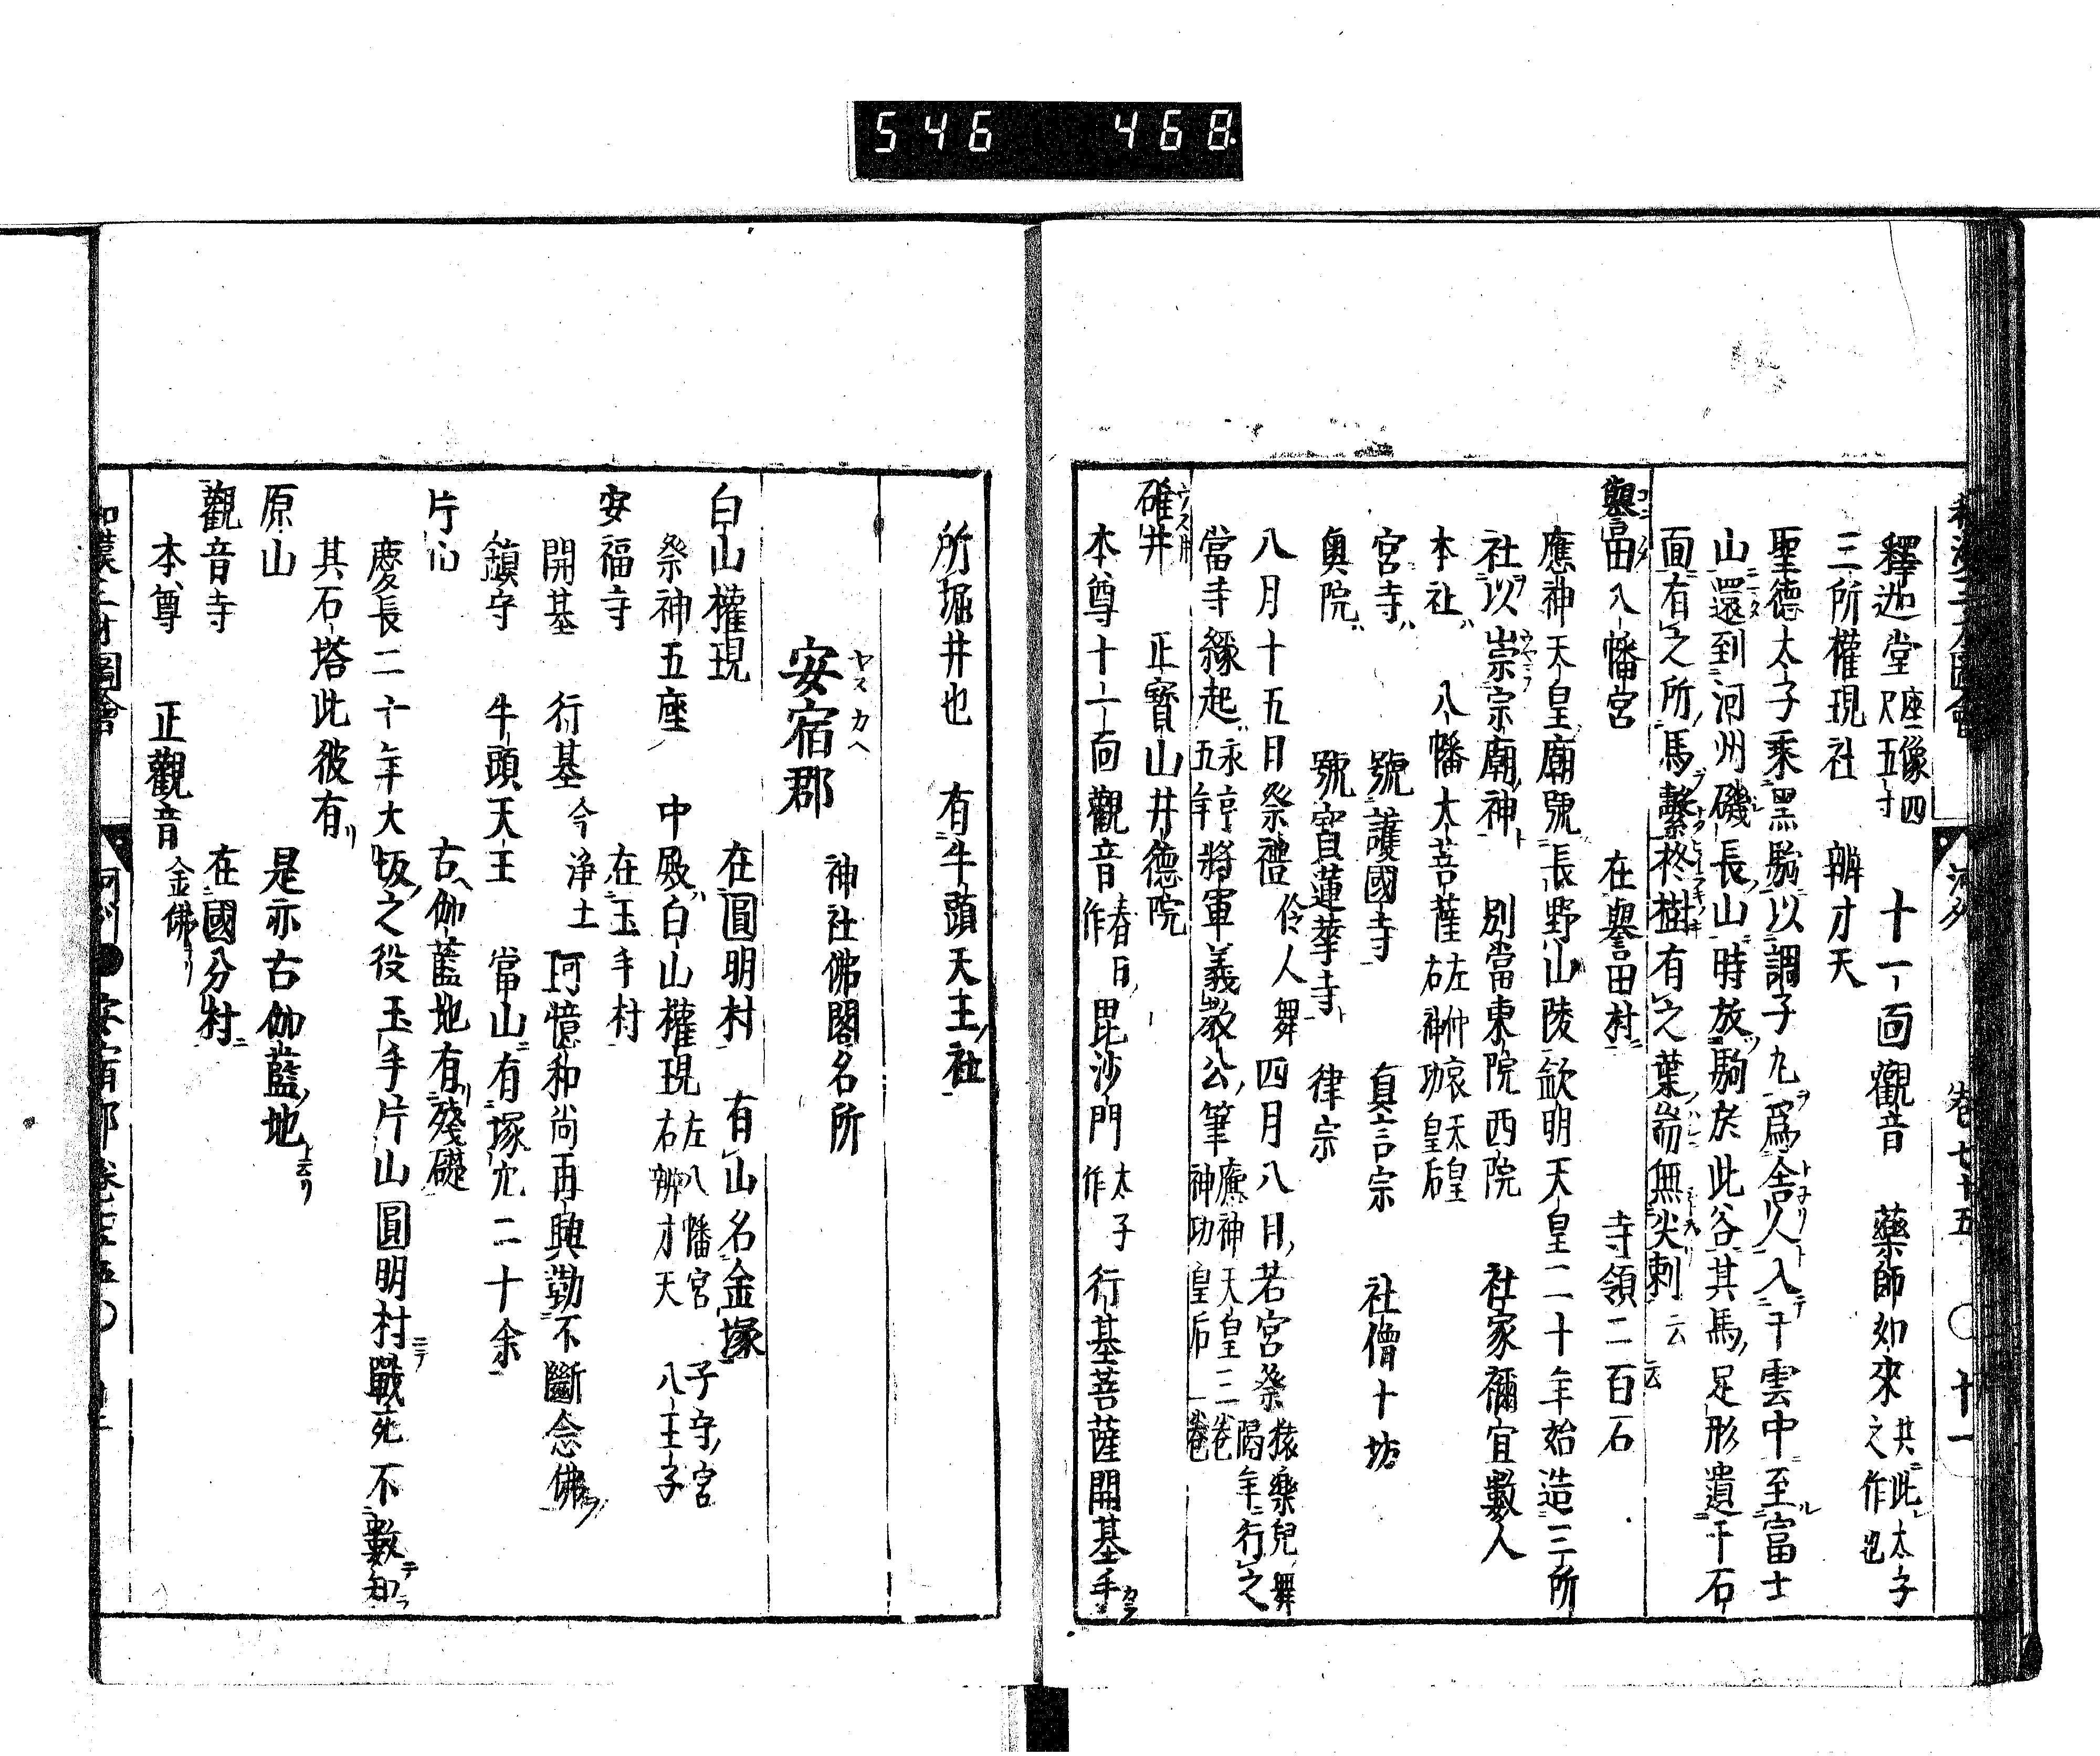 546 468
和漢三才圖會 河州 卷七十五 〇 十一
釋迦堂 座像四尺五寸 十一面觀音 藥師如來 共此太子之作也
三所權現社 辨才天
聖德太子乘黑駒以調子丸爲舎人入于雲中至富士
山還到河州磯長山時放駒於此谷其馬足形遺于石
面有之所馬繫柊樹有之葉耑無尖刺云云
譽田八幡宮 在譽田村 寺領二百石
應神天皇廟號長野山陵欽明天皇二十年始造三所
社以崇宗廟神 別當東院西院 社家禰宜數人
本社 八幡大菩薩 左仲哀天皇 右神功皇后
宮寺 號護國寺 真言宗 社僧十坊
奥院 號寳蓮華寺 律宗
八月十五日祭禮 伶人舞 四月八日若宮祭 猿樂兒舞隔年行之
當寺縁起 永享五年將軍義教公筆 應神天皇三卷 神功皇后一卷
碓井 正寳山井德院
本尊十一面觀音 春日作 毘沙門 太子作 行基菩薩開基手
所堀井也 有牛頭天王社
安宿郡 神社佛閣名所
ヤスカヘ
白山權現 在圓明村 有山名金塚
祭神五座 中殿白山權現 左八幡宮 右辨才天 子守宮 八王子
安福寺 在玉手村
開基 行基 今浄土 珂憶和尚再興勤不斷念佛
鎮守 牛頭天王 當山有塚穴二十余
片山 古伽藍地有殘礎
慶長二十年大坂之役玉手片山圓明村戰死不數知
其石塔此彼有
原山 是亦古伽藍地
觀音寺 在國分村
本尊 正觀音 金佛
和漢三才圖會 河州 ● 安宿郡 卷七十五 〇